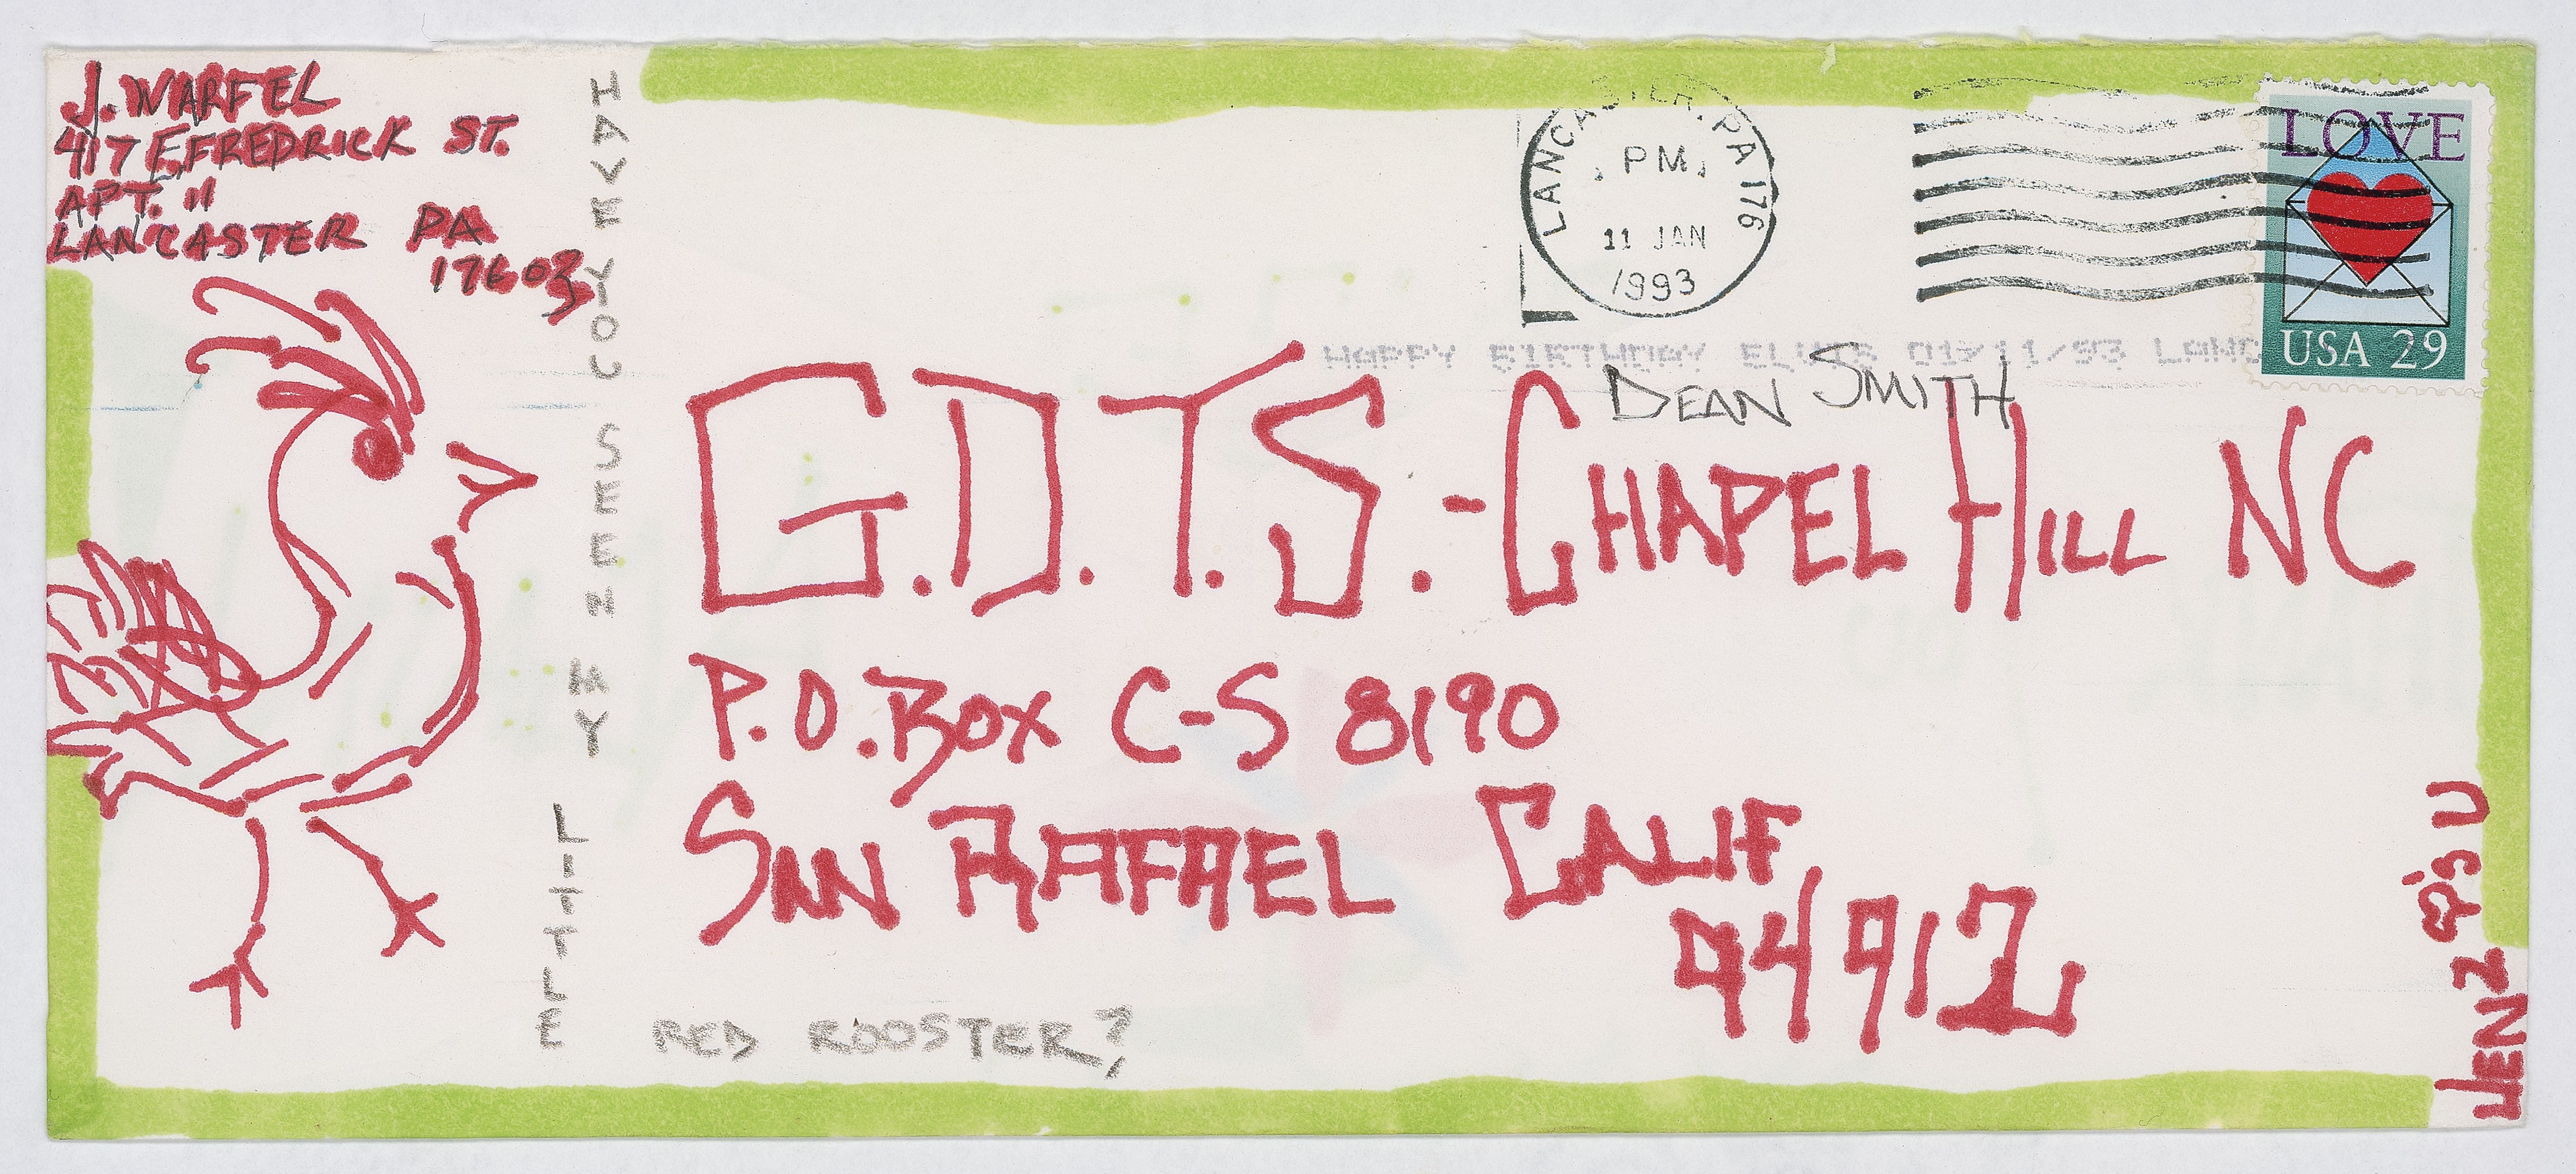 J. WARFEL
417 E. FREDRICK ST.
APT. 11
LANCASTER PA
17603
HAVE YOU SEEN MY LITTLE
RED ROOSTER?
LANCASTER, PA 176
PM
11 JAN
1993
LOVE
USA 29
HAPPY BIRTHDAY ELVIS 01/11/93 LANC
DEAN SMITH
G.D.T.S.-CHAPEL HILL NC
P.O. BOX C-S 8190
SAN RAFAEL CALIF
94912
JEN 2 U